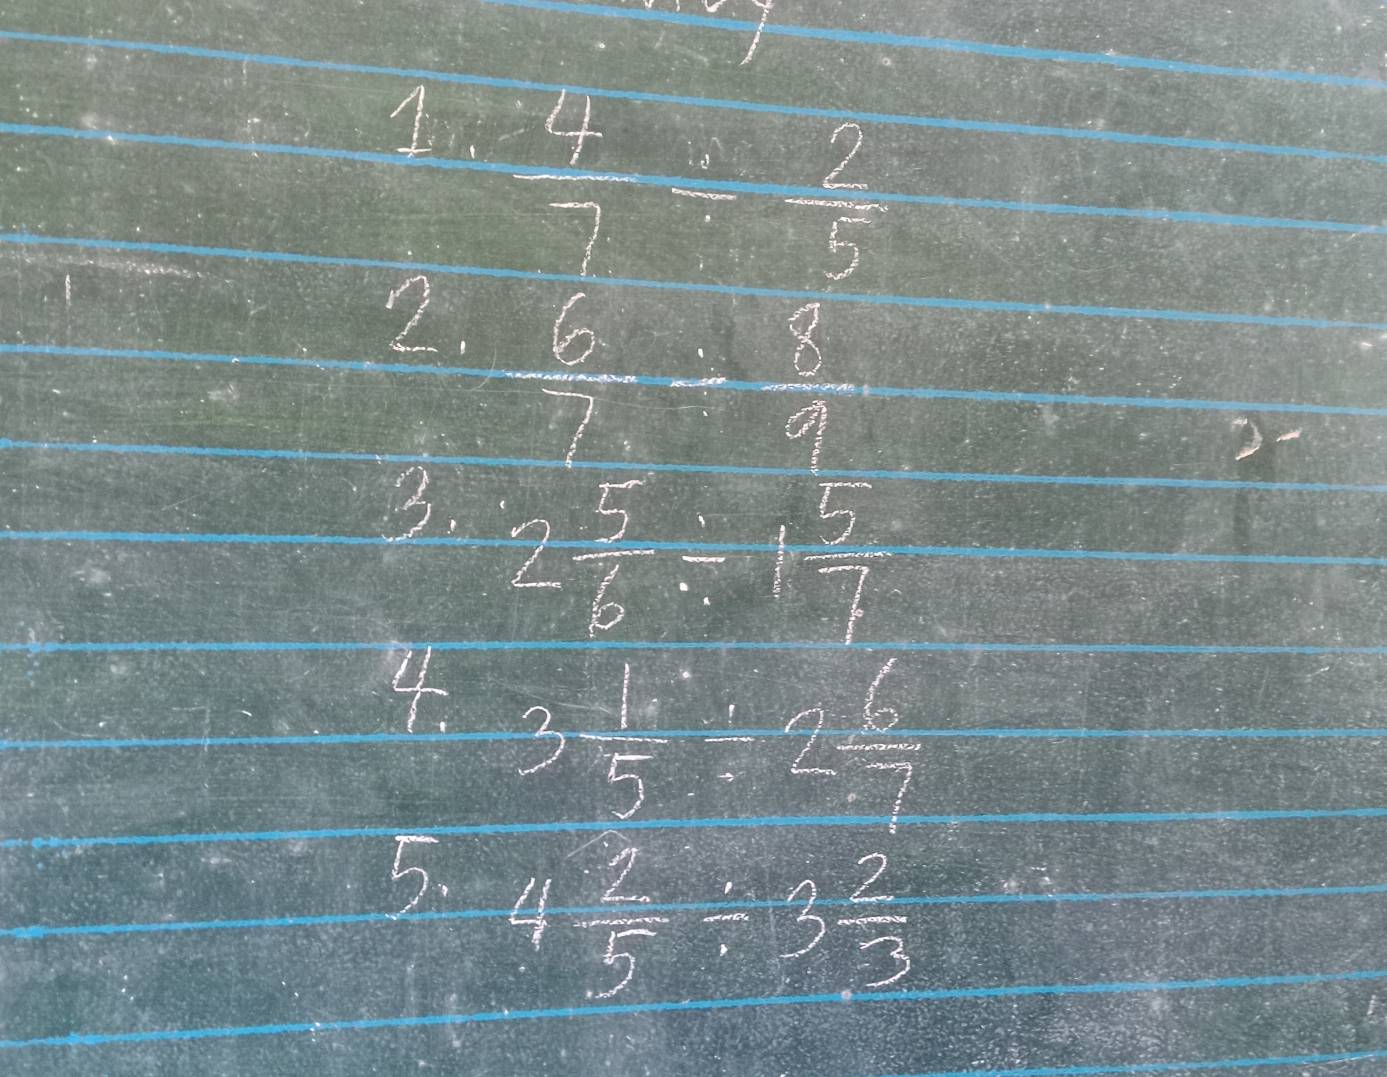 1. 4/7 ÷ 2/5
2. 6/7 ÷ 8/9
3. 2 5/6 ÷ 1 5/7
4. 3 1/5 ÷ 2 6/7
5. 4 2/5 ÷ 3 2/3